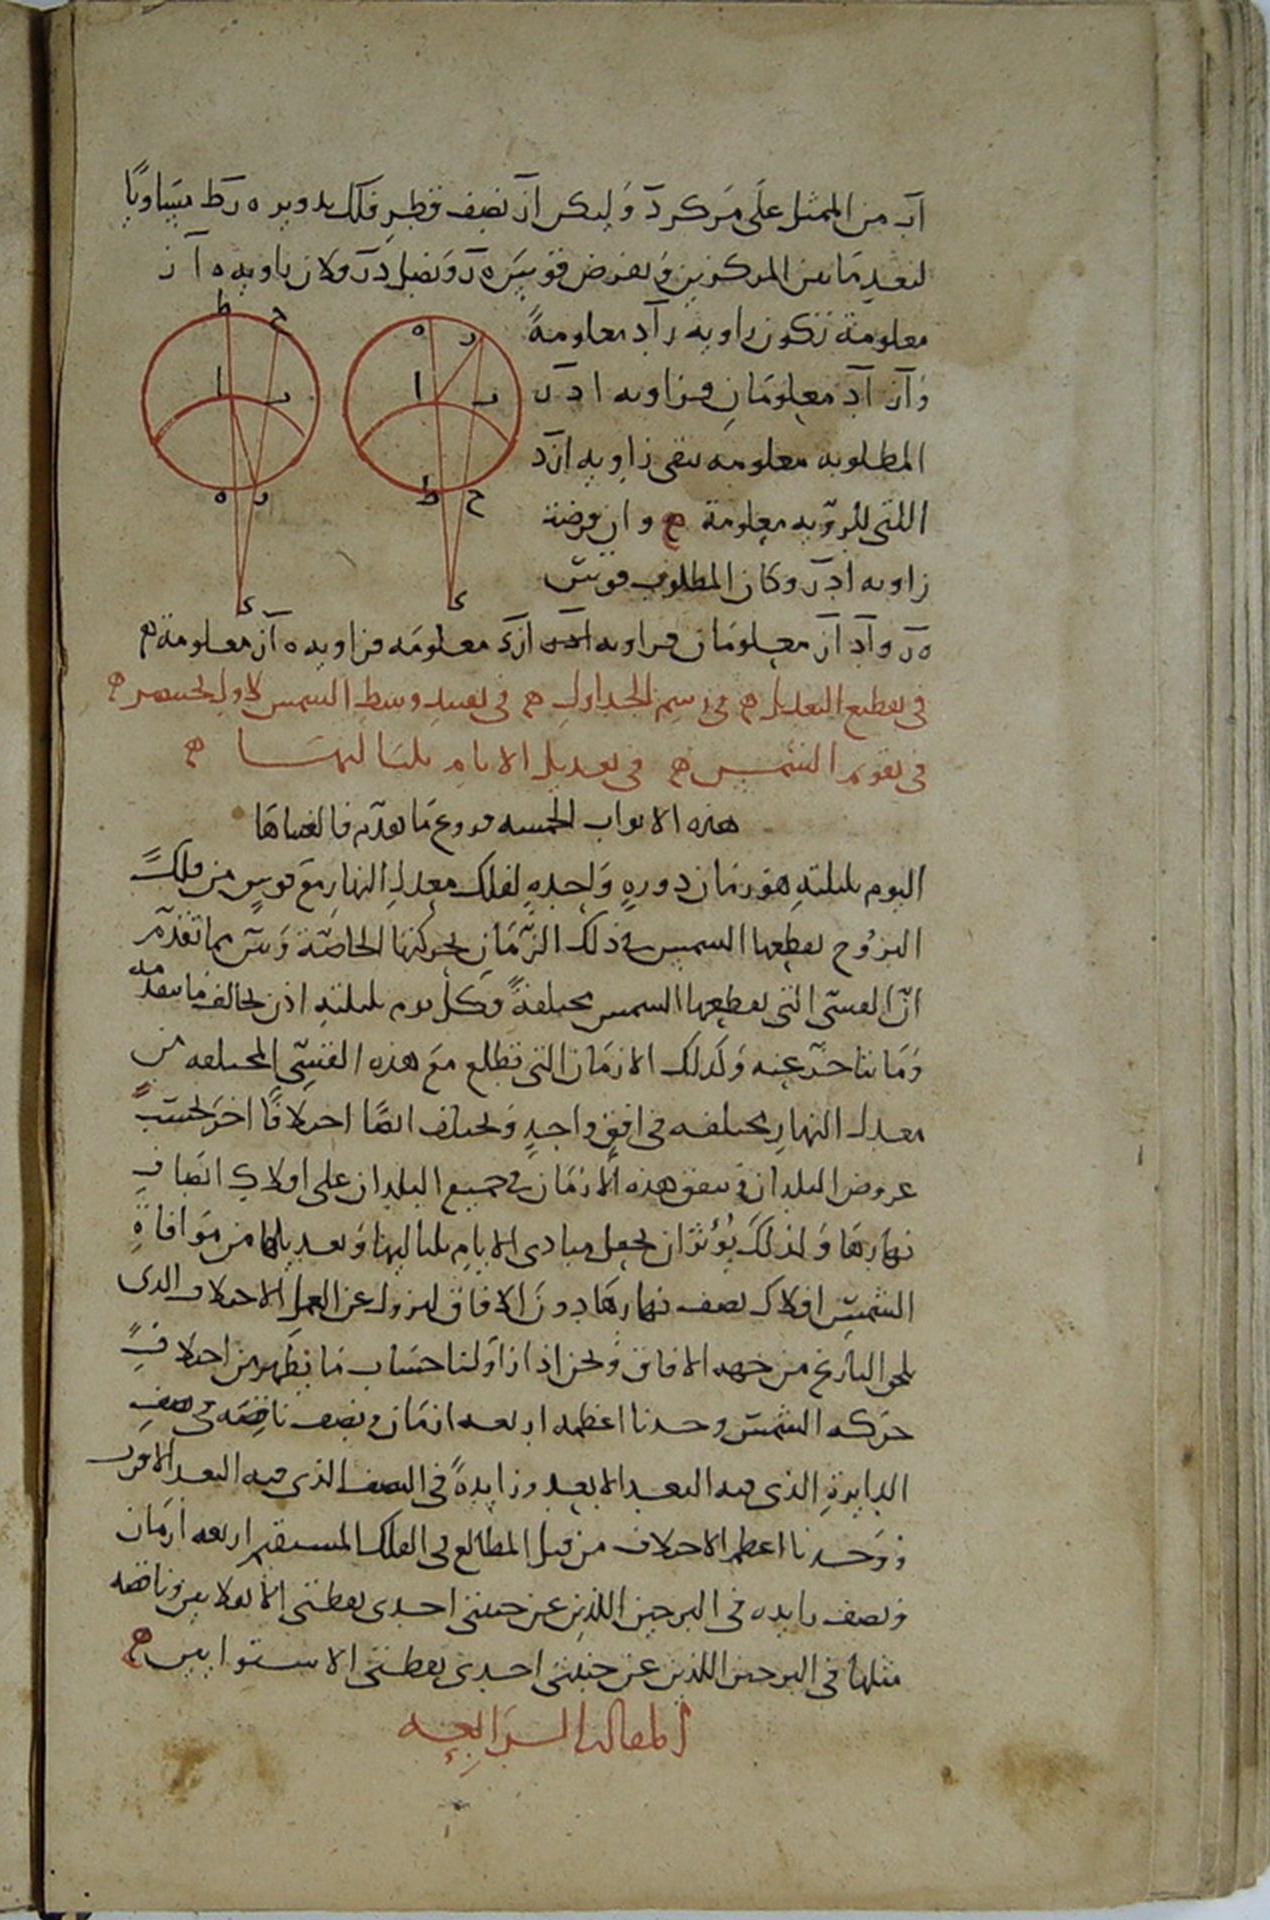 اب من الممثل على مركز د وليكن ار نصف قطر فلك تدوير ه ر ط مساويا
لبعد ما بين المركزين ونفرض قوس ه ر ونصل د ر ولان زاوية ه ا ر
معلومة تكون زاوية ر ا د معلومة
و ا ر ا د معلومان فزاوية ا د ر
المطلوبة معلومة تبقى زاوية ا ر د
اللتي للروية معلومة وان فرضت
زاوية ا د ر وكان المطلوب قوس
ه ر و ا د ا ر معلومان فزاوية ا ر د معلومة فزاوية ه ا ر معلومة
في تقطيع التعديل في رسم الجداول في تقييد وسط الشمس لاول
في تقويم الشمس في تعديل الايام بلياليها
هذه الابواب الخمسة فروع ما تقدم فالغيناها
اليوم بليلته هو زمان دورة واحدة لفلك معدل النهار مع قوس من فلك
البروج تقطعها الشمس في ذلك الزمان بحركتها الخاصة وتبين مما تقدم
ان القسي التي تقطعها الشمس مختلفة فكل يوم بليلته اذن يخالف ما يتقدمه
وما يتاخر عنه وكذلك الازمان التي تطلع مع هذه القسي المختلفة من
معدل النهار مختلفة في افق واحد وتختلف ايضا اختلافا اخر بحسب
عروض البلدان وتتفق هذه الازمان في جميع البلدان على افلاك انصاف
نهارها ولذلك يؤثر ان نجعل مبادي الايام بلياليها وتعديلها من موافاة
الشمس افلاك نصف نهارها دون الافاق ليزول عن العمل الاختلاف الذي
يلحق التاريخ من جهة الافاق ونحن اذا زاولنا حساب ما يظهر من اختلاف
حركة الشمس وجدنا اعظمه اربعة ازمان ونصف ناقصة في نصف
الدايرة الذي فيه البعد الابعد وزايدة في النصف الذي فيه البعد الاقرب
ووجدنا اعظم الاختلاف من قبل المطالع في الفلك المستقيم اربعة ازمان
ونصف زايدة في البرجين اللذين عن جنبتي احدى نقطتي الانقلابين وناقصة
مثلها في البرجين اللذين عن جنبتي احدى نقطتي الاستوايين
المقالة الرابعة